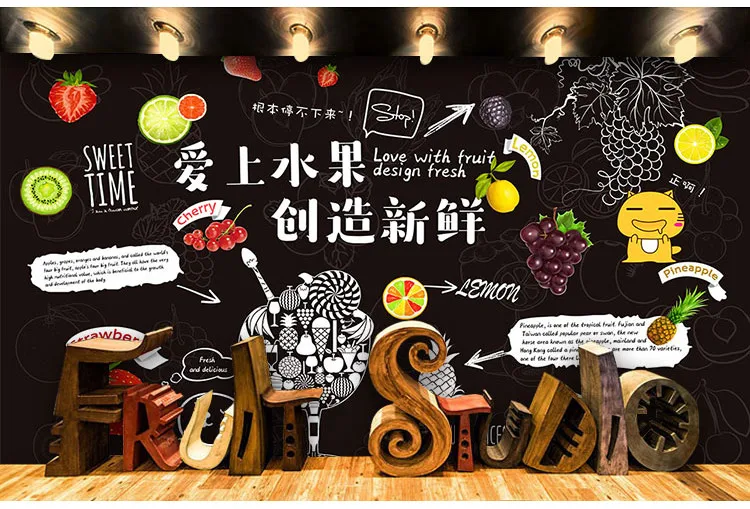 根本停不下来~!
Stop!
SWEET
TIME
爱上水果
Love with fruit
design fresh
创造新鲜
Lemon
正啊!
Cherry
Pineapple
Apples, grapes, oranges and bananas, and called the world's
four big fruit, apple's four big fruit. They all have the very
high nutritional value, which is beneficial to the growth
and development of the body.
LEMON
Pineapple, is one of the tropical fruit. Fujian and
Taiwan called popular pear or swan, the new
horse area known as the pineapple, mainland and
Hong Kong called a more than 70 varieties,
one of the four
Strawber
Fresh
and delicious
Fruit Studio